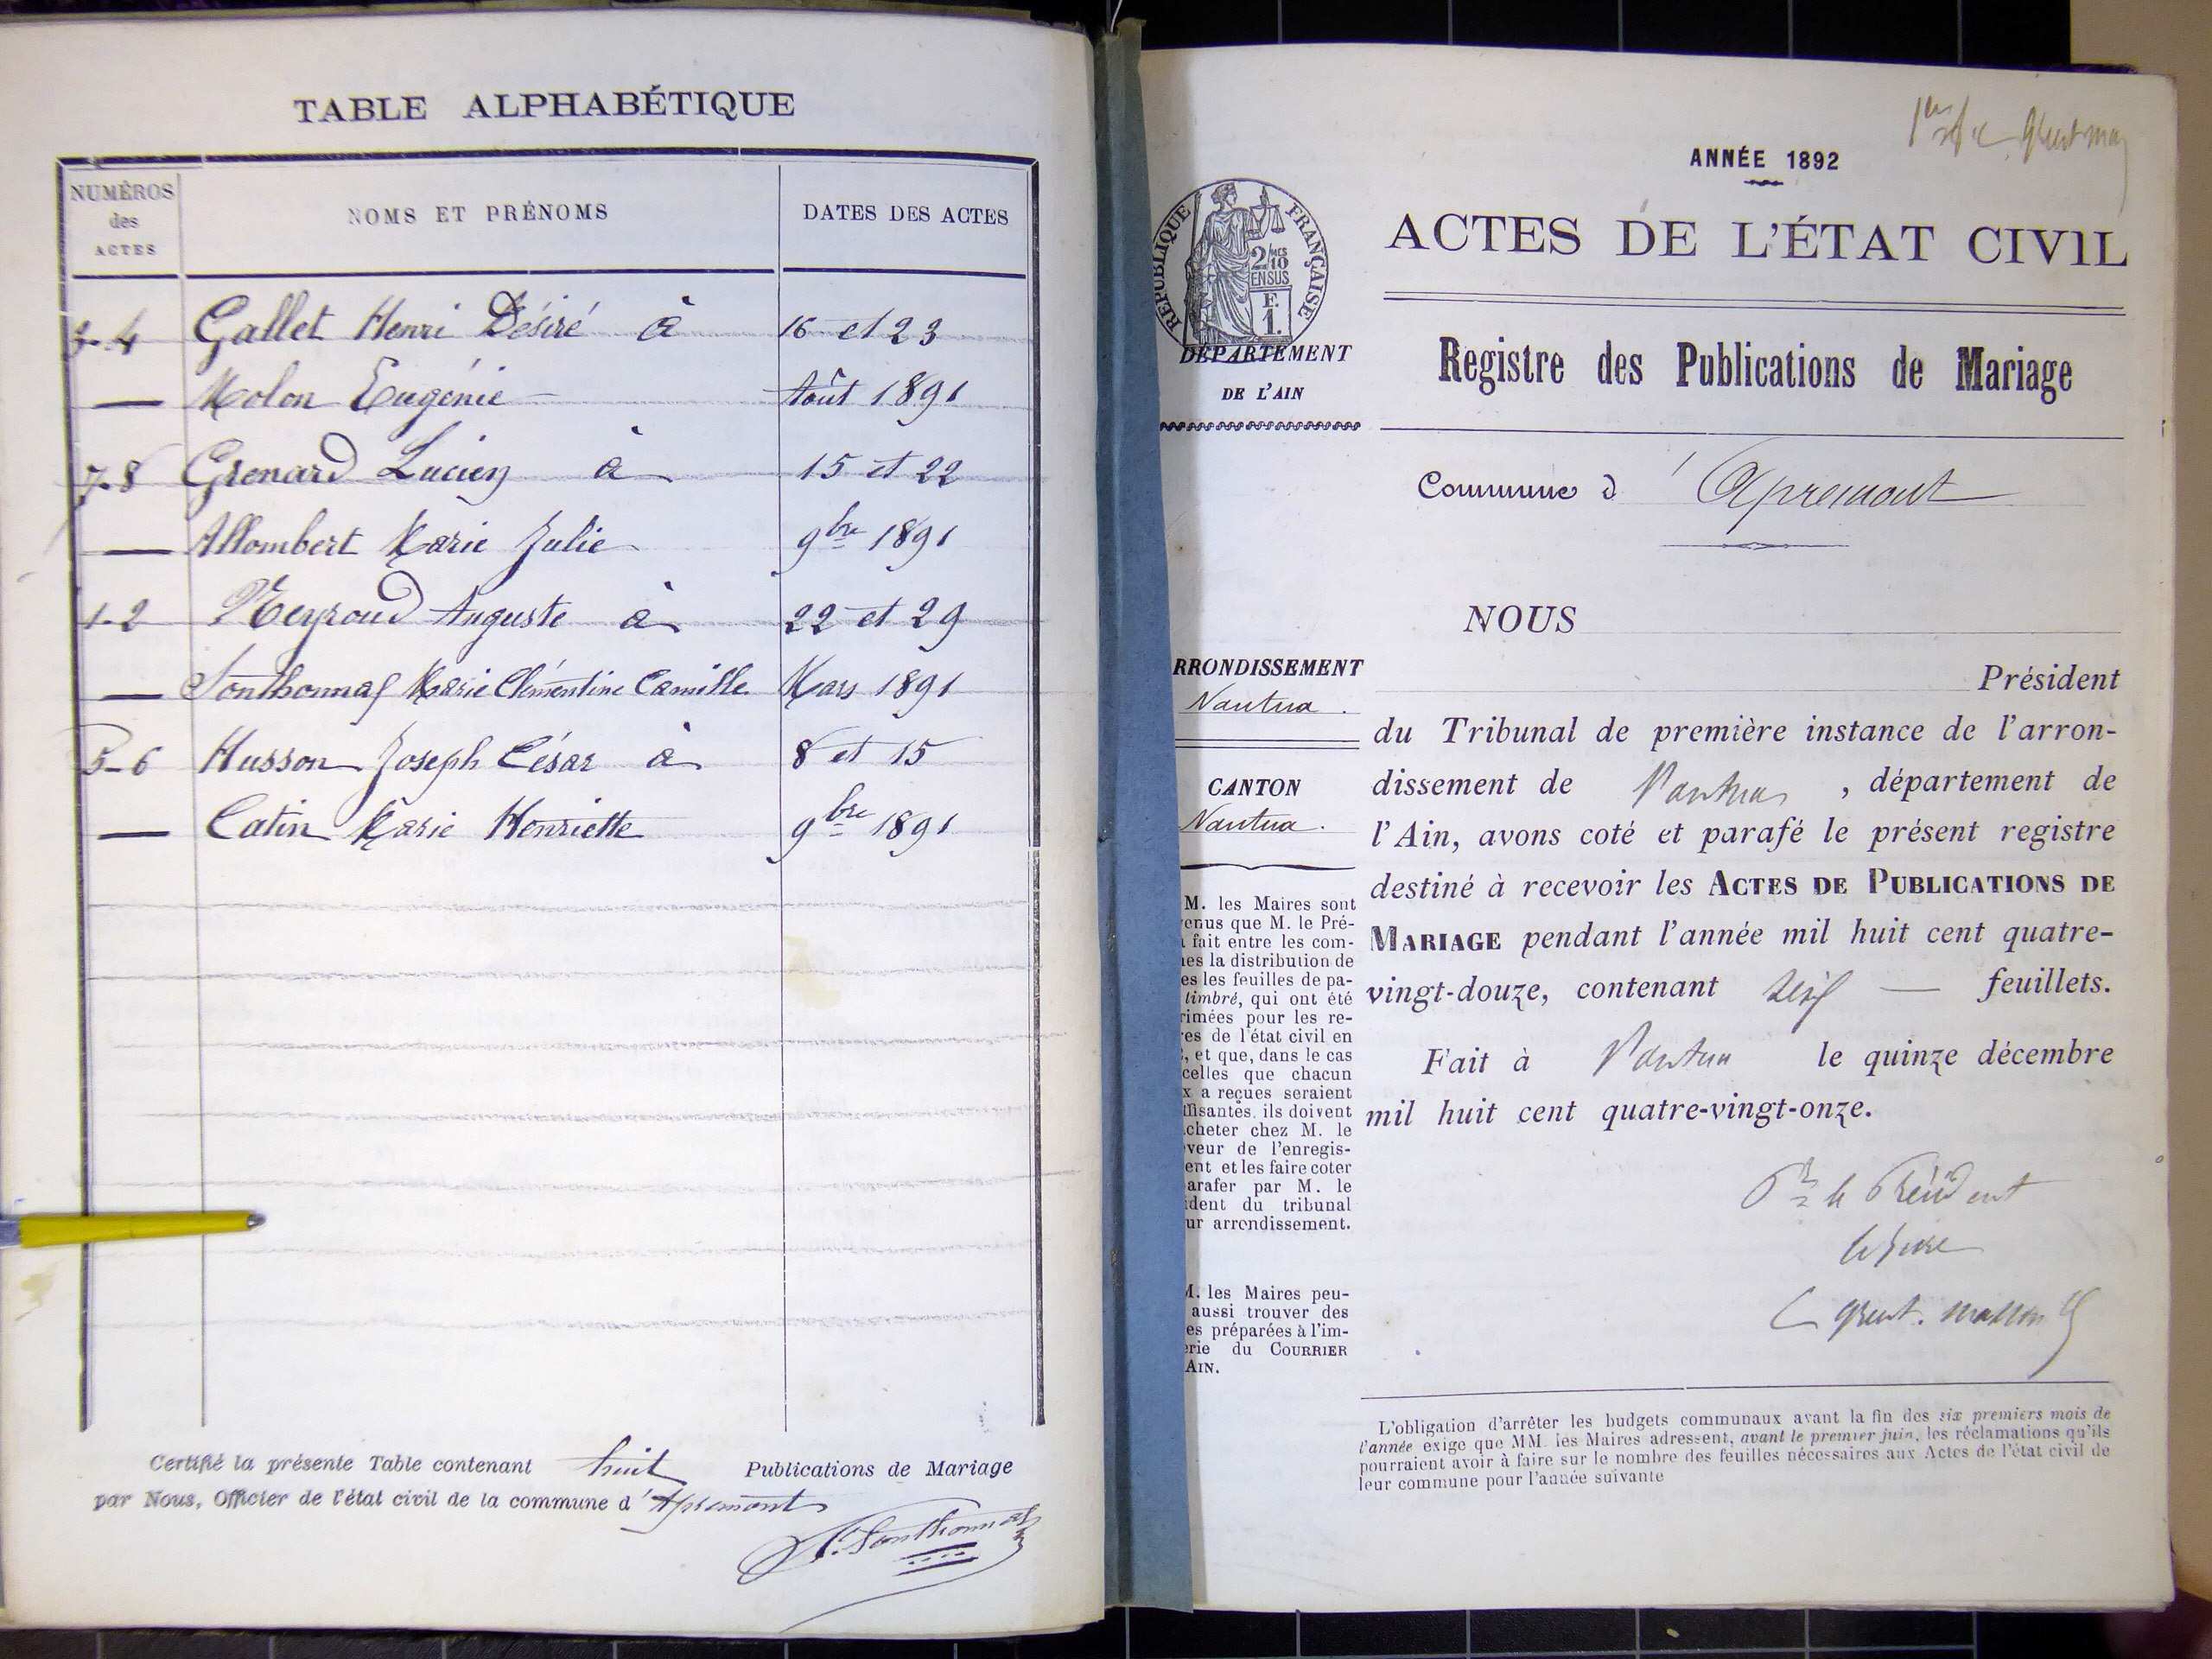 TABLE ALPHABÉTIQUE
NUMÉROS
des
ACTES
NOMS ET PRÉNOMS
DATES DES ACTES
3-4 Gallet Henri Désiré à 16 et 23
— Molon Eugénie — Août 1891
7-8 Grenard Lucien à 15 et 22
— Allombert Marie Julie 9bre 1891
1-2 Neyroud Auguste à 22 et 29
— Sonthonnax Marie Clémentine Camille Mars 1891
5-6 Husson Joseph César à 8 et 15
— Catin Marie Henriette 9bre 1891
Certifié la présente Table contenant huit Publications de Mariage
par Nous, Officier de l'état civil de la commune d'Apremont
Sonthonnax
ANNÉE 1892
RÉPUBLIQUE FRANÇAISE
2/MES
10
EN SUS
F.
1.
ACTES DE L'ÉTAT CIVIL
DÉPARTEMENT
DE L'AIN
Registre des Publications de Mariage
Commune d'Apremont
RRONDISSEMENT
Nantua.
CANTON
Nantua.
M. les Maires sont
enus que M. le Pré-
fait entre les com-
es la distribution de
es les feuilles de pa-
timbré, qui ont été
rimées pour les re-
res de l'état civil en
, et que, dans le cas
celles que chacun
x a reçues seraient
ffisantes, ils doivent
cheter chez M. le
veur de l'enregis-
ent et les faire coter
arafer par M. le
ident du tribunal
ur arrondissement.
M. les Maires peu-
aussi trouver des
es préparées à l'im-
erie du COURRIER
AIN.
NOUS
Président
du Tribunal de première instance de l'arron-
dissement de Nantua, département de
l'Ain, avons coté et parafé le présent registre
destiné à recevoir les ACTES DE PUBLICATIONS DE
MARIAGE pendant l'année mil huit cent quatre-
vingt-douze, contenant feuillets.
Fait à Nantua le quinze décembre
mil huit cent quatre-vingt-onze.
Pr le Président
le Juge
L'obligation d'arrêter les budgets communaux avant la fin des six premiers mois de
l'année exige que MM. les Maires adressent, avant le premier juin, les réclamations qu'ils
pourraient avoir à faire sur le nombre des feuilles nécessaires aux Actes de l'état civil de
leur commune pour l'année suivante